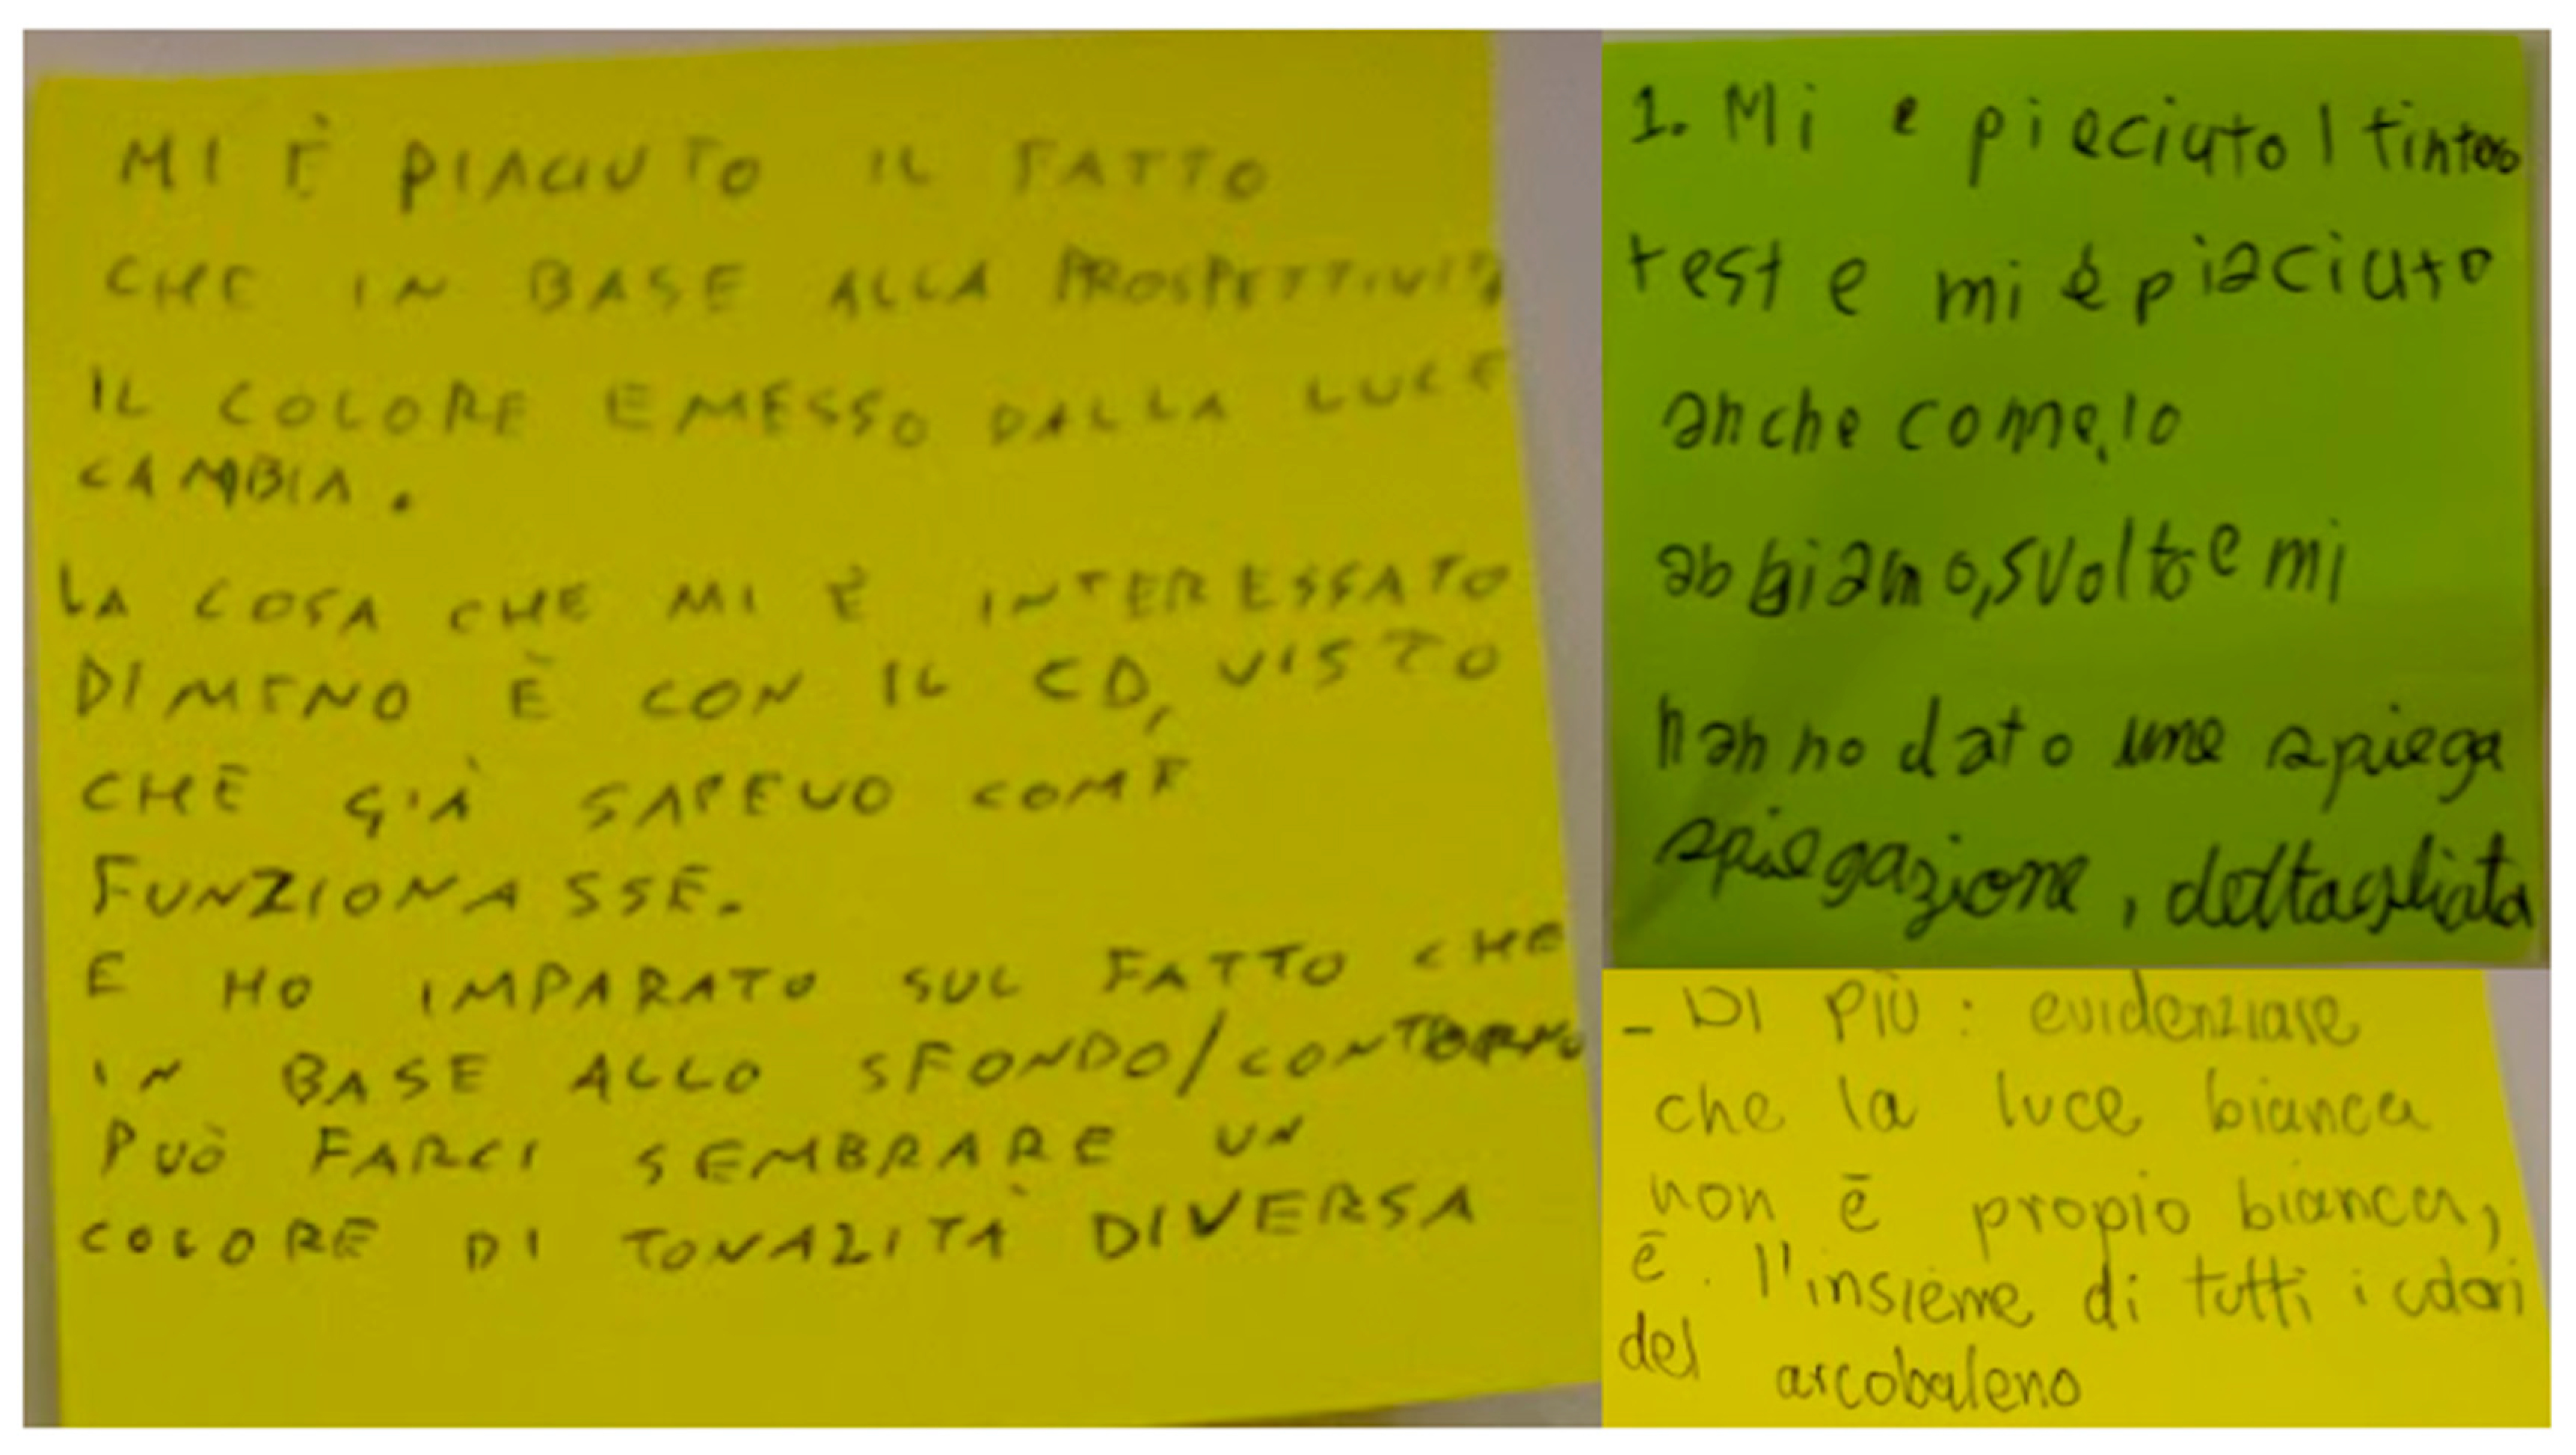 MI È PIACIUTO IL FATTO
CHE IN BASE ALLA PROSPETTIVITÀ
IL COLORE EMESSO DALLA LUCE
CAMBIA.
LA COSA CHE MI È INTERESSATO
DI MENO È CON IL CD, VISTO
CHE GIÀ SAPEVO COME
FUNZIONASSE.
E HO IMPARATO SUL FATTO CHE
IN BASE ALLO SFONDO/CONTORNO
PUÒ FARCI SEMBRARE UN
COLORE DI TONALITÀ DIVERSA
1. Mi e pieciuto l
test e mi è piaciuto
anche come, lo
abbiamo, svolto e mi
hanno dato una spiega
spiegazione, dettagliata
- DI PIÙ: evidenziare
che la luce bianca
non è propio bianca,
è. l'insieme di tutti i colori
del arcobaleno